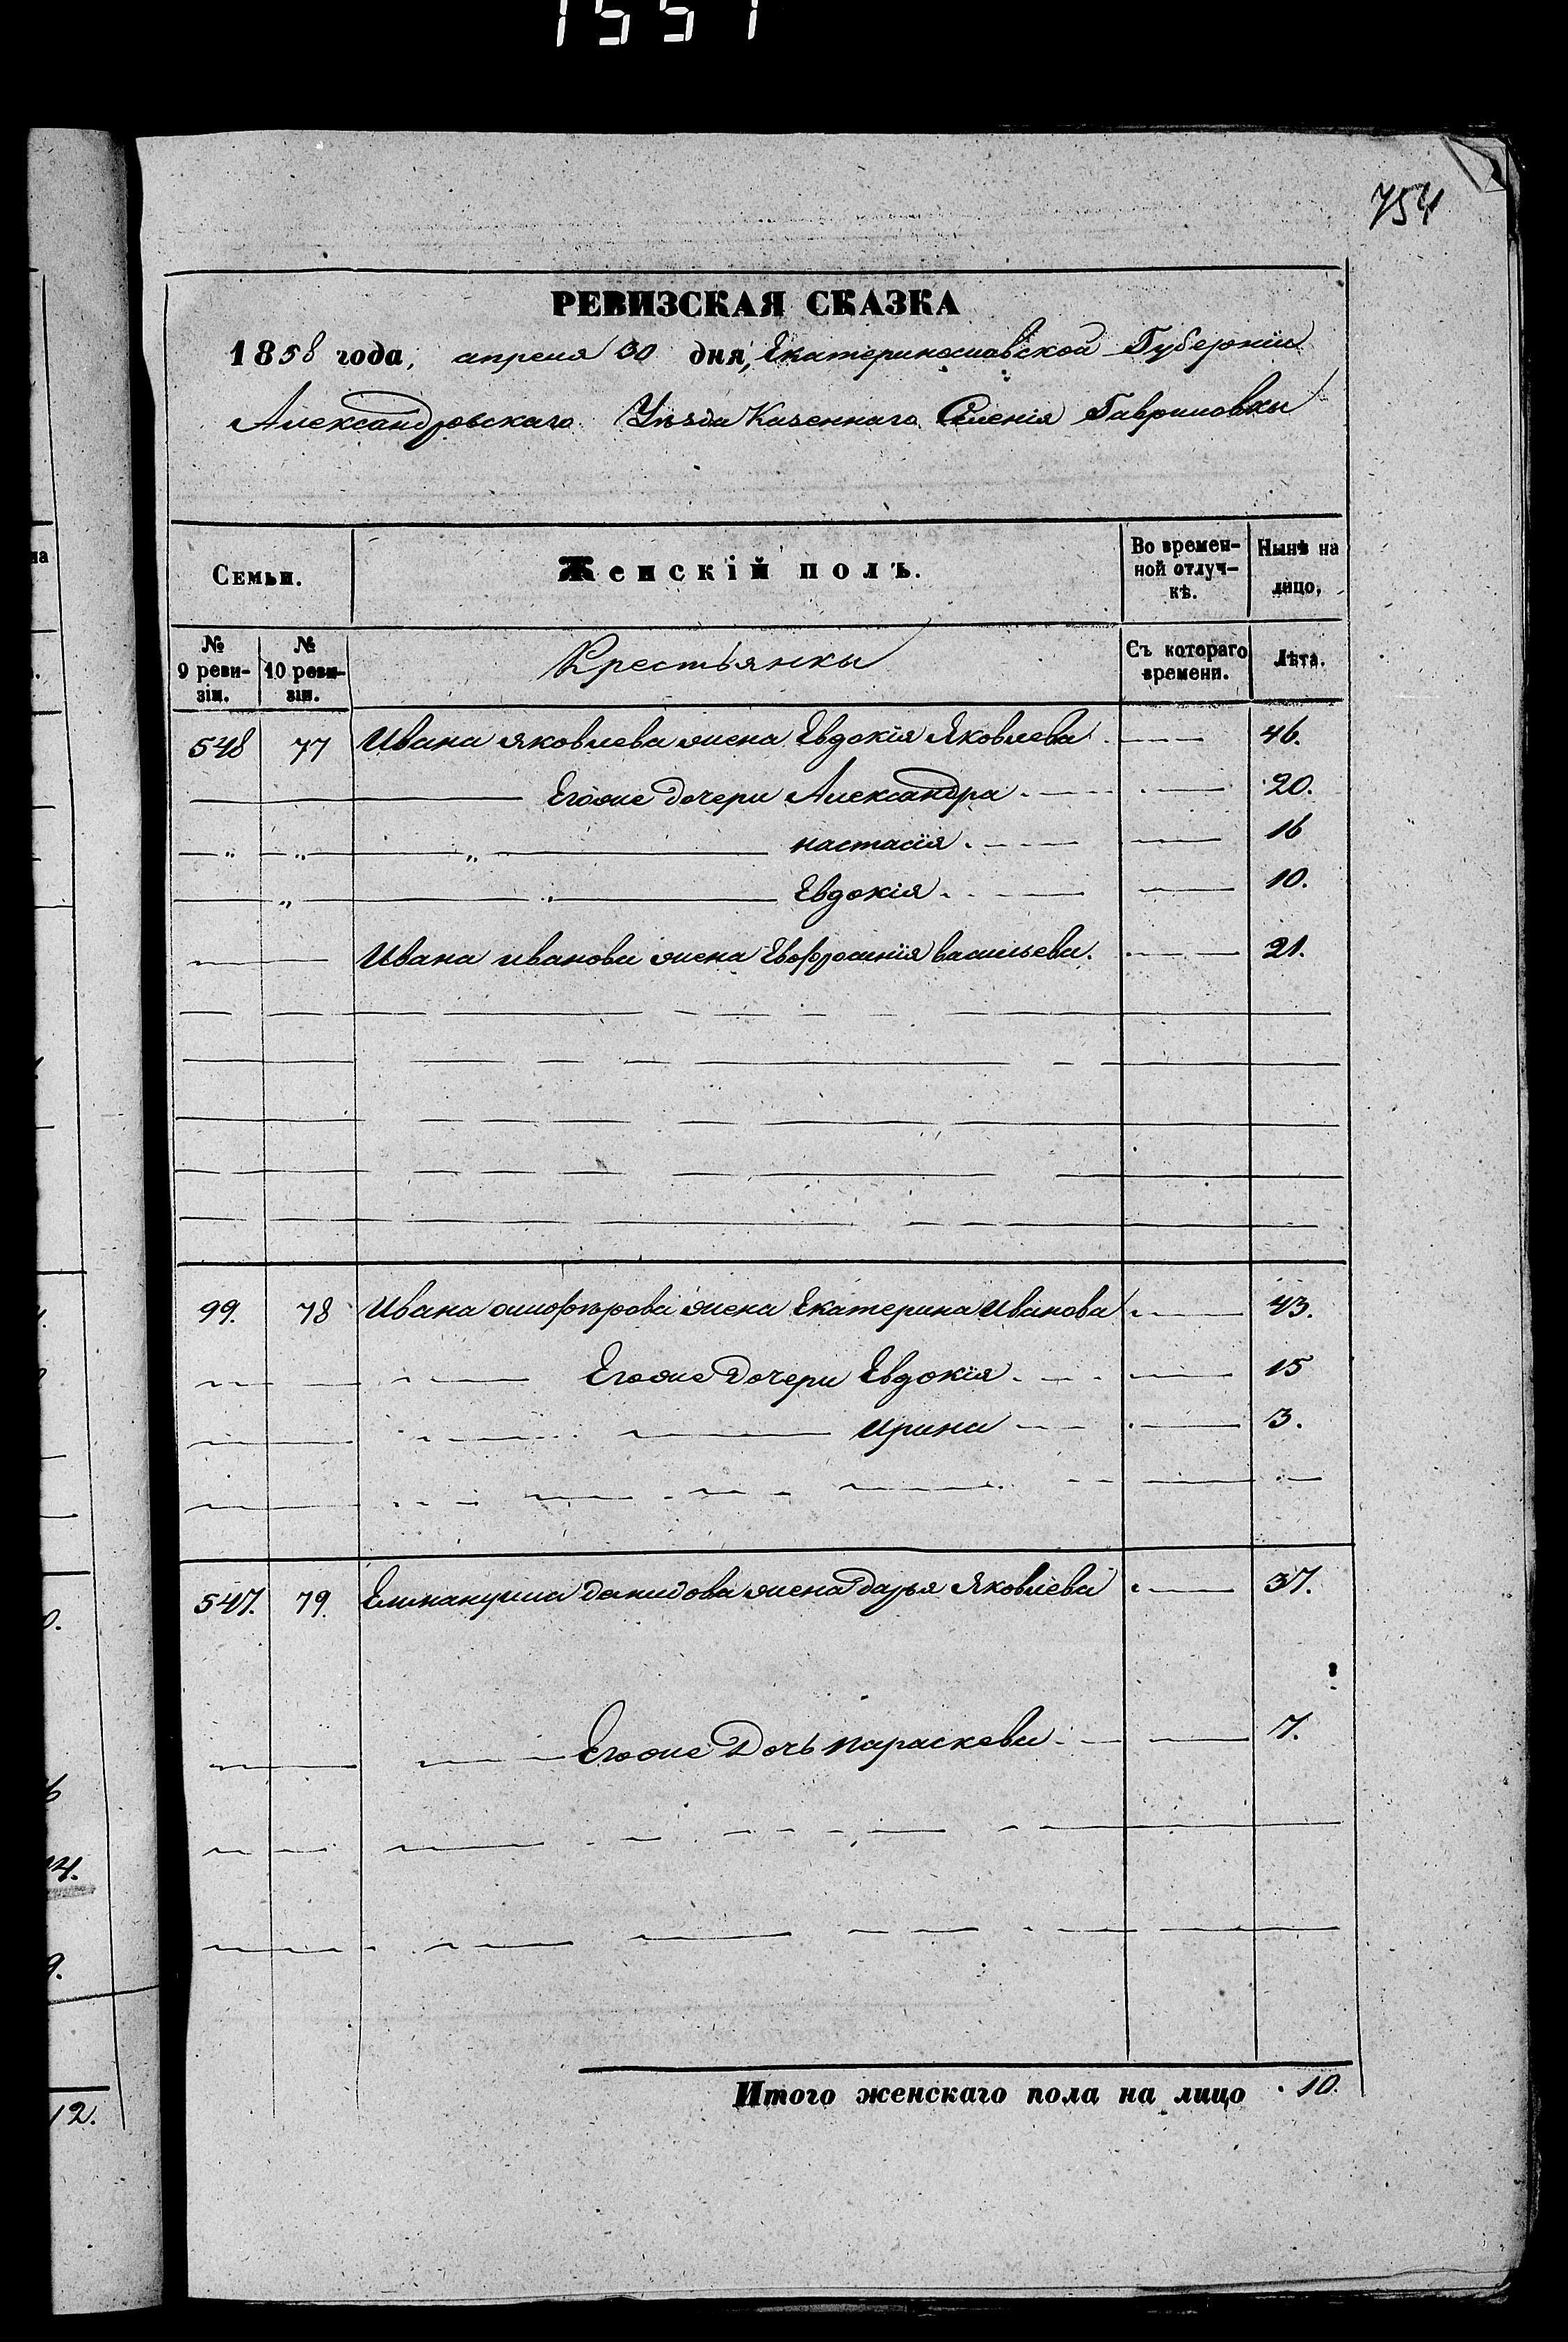 1551
754
РЕВИЗСКАЯ СКАЗКА
1858 года, апреля 30 дня, Екатеринославской Губернiи
Александровскаго Уѣзда Казеннаго Селенiя Гавриловки
Семьи. Женскiй полъ. Во времен-ной отлуч-кѣ. Нынѣ на лицо,
№ 9 реви-зiи. № 10 реви-зiи. Крестьянки Съ котораго времени. Лѣта.
548 77 Ивана яковлева жена Евдокiя Яковлева 46.
Егоже дочери Александра 20.
настасiя 16
Евдокiя 10.
Ивана иванова жена Евфросинiя васильева. 21.
99. 78 Ивана жена Екатерина Иванова 43.
Егоже дочери Евдокiя 15
Ирина 3.
547. 79. Емнануила данидова жена дарья Яковлева 37.
Егоже Дочь параскева 7.
Итого женскаго пола на лицо 10.
12.